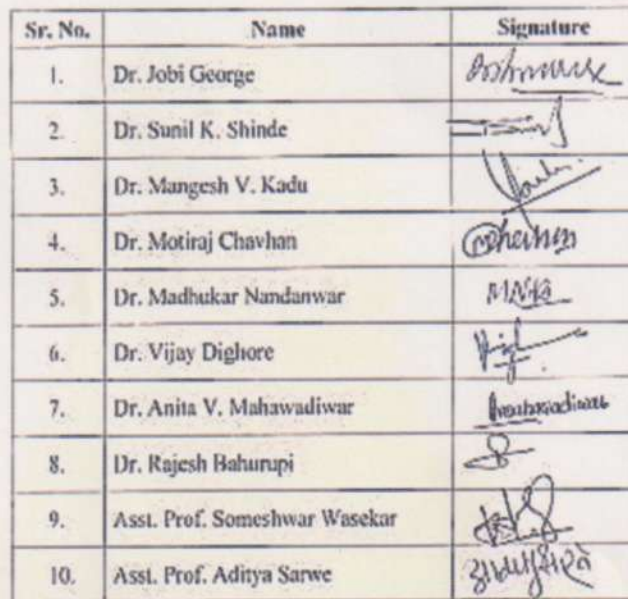 Sr. No. Name Signature
1. Dr. Jobi George
2. Dr. Sunil K. Shinde
3. Dr. Mangesh V. Kadu
4. Dr. Motiraj Chavhan
5. Dr. Madhukar Nandanwar
6. Dr. Vijay Dighore
7. Dr. Anita V. Mahawadiwar
8. Dr. Rajesh Bahurupi
9. Asst. Prof. Someshwar Wasekar
10. Asst. Prof. Aditya Sarwe